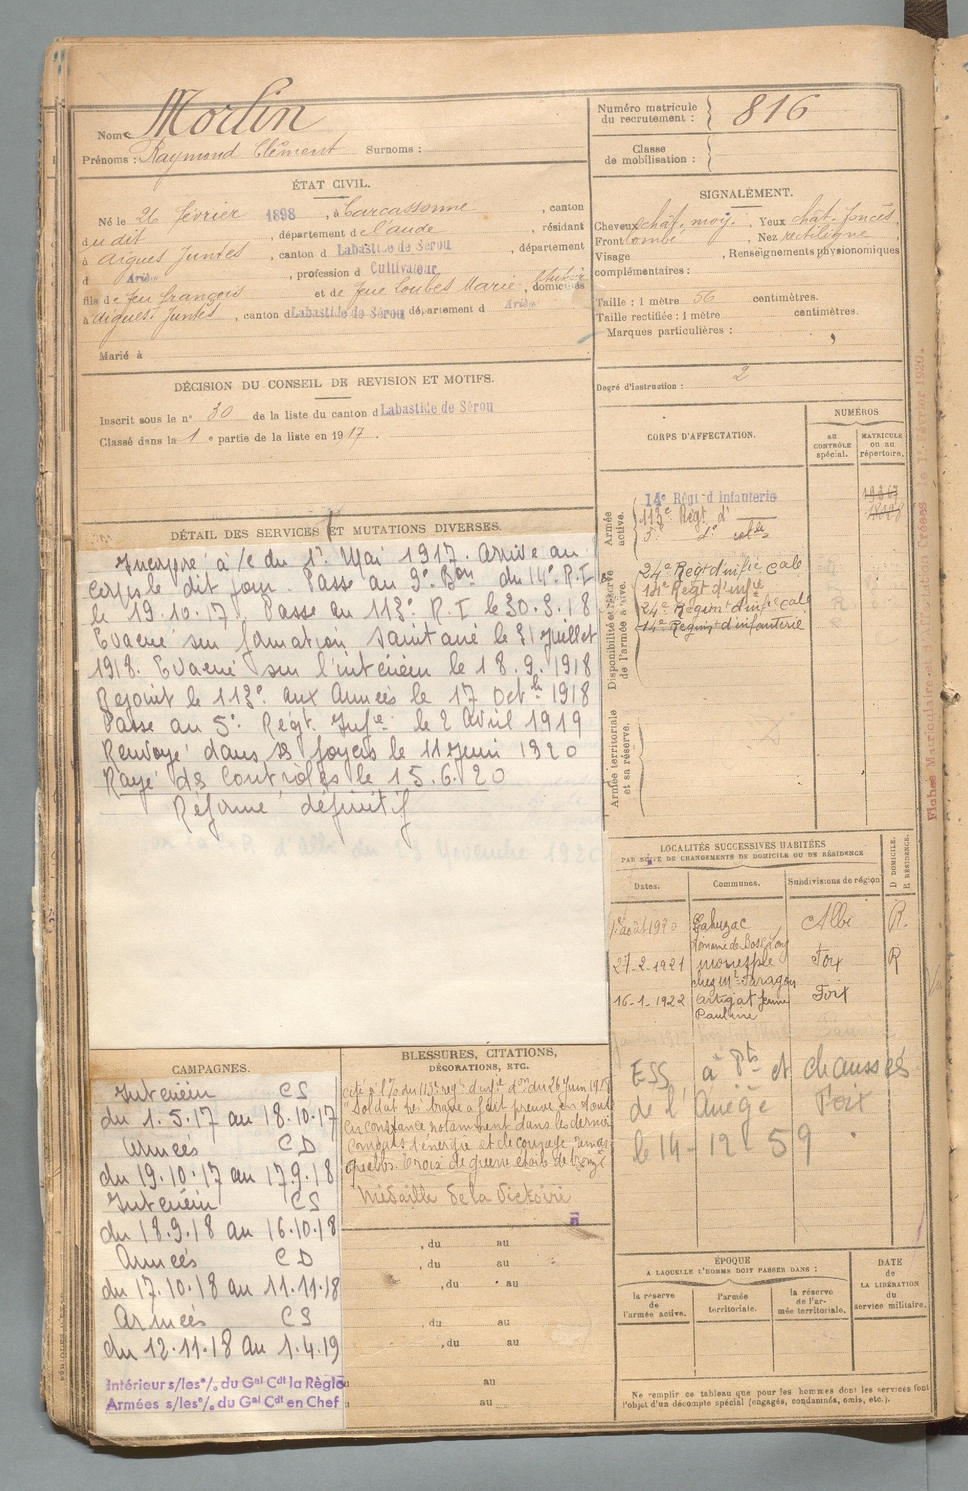 Nom: Morlin
Prénoms : Raymond Clément Surnoms :
Numéro matricule
du recrutement : 816
Classe
de mobilisation :
ÉTAT CIVIL.
Né le 26 février 1898, à Carcassonne, canton
dudit, département de l'aude, résidant
à aigues Juntes, canton de Labastide de Sérou, département
d Ariège, profession de Cultivateur
fils de feu françois et de feue Loubes Marie, domiciliés
à aigues Juntes, canton de Labastide de Sérou département d Ariège
Marié à
SIGNALEMENT.
Cheveux chât. moy. Yeux chât. foncés
Front bombé Nez rectiligne
Visage , Renseignements physionomiques
complémentaires :
Taille : 1 mètre 56 centimètres.
Taille rectifiée : 1 mètre centimètres.
Marques particulières :
Degré d'instruction : 2
DÉCISION DU CONSEIL DE REVISION ET MOTIFS.
Inscrit sous le n° 30 de la liste du canton de Labastide de Sérou
Classé dans la 1e partie de la liste en 1917.
DÉTAIL DES SERVICES ET MUTATIONS DIVERSES.
Incorporé à /c du 1er Mai 1917. Arrivé au
Corps le dit jour. Passé au 9e Bon du 14e R.I
le 19.10.17. Passé au 113e R.I le 30.3.18
Evacué sur formation sanitaire le 31 Juillet
1918. Evacué sur l'intérieur le 18.9.1918
Rejoint le 113e aux Armées le 17 Octbre 1918
Passé au 5e Régt Infie le 2 Avril 1919
Renvoyé dans ses foyers le 11 Juin 1920
Rayé des Contrôles le 15.6.20
Réformé définitif
CORPS D'AFFECTATION.
NUMÉROS
au contrôle spécial.
MATRICULE ou au répertoire.
Armée active.
14e Régt d'Infanterie
113e Régt d°
5e d°
Disponibilité et réserve de l'armée active.
24e Regt d'infie Cale
14e Régt d'infie
24e Régimt d'infie Cale
14e Régimt d'infanterie
Armée territoriale et sa réserve.
LOCALITÉS SUCCESSIVES HABITÉES
PAR SUITE DE CHANGEMENTS DE DOMICILE OU DE RÉSIDENCE
Dates. Communes. Subdivisions de région D DOMICILE. R RÉSIDENCE.
1er août 1920 Cahuzac Albi R.
27-2-1921 monesple Foix R
16-1-1922 Artigat ferme Foix
Pauline
ESS à Pts et chaussés
de l'Ariège Foix
le 14-12-59
CAMPAGNES.
Intérieur CS
du 1.5.17 au 18.10.17
Armées CD
du 19.10.17 au 17.9.18
Intérieur CS
du 18.9.18 au 16.10.18
Armées CD
du 17.10.18 au 11.11.18
Armées CS
du 12.11.18 au 1.4.19
Intérieur s/les °/. du Gal Cdt la Région
Armées s/les °/. du Gal Cdt en Chef
BLESSURES, CITATIONS,
DÉCORATIONS, ETC.
Cité à l'O/ du 113e regt d'infie du 26 Juin 1918
"Soldat très brave a fait preuve en toute
circonstance notamment dans les derniers
combats d'énergie et de courage remar
quables. Croix de guerre étoile de bronze
Médaille de la Victoire
, du au
, du au
, du au
, du au
, du au
au
au
ÉPOQUE
A LAQUELLE L'HOMME DOIT PASSER DANS :
la réserve de l'armée active.
l'armée territoriale.
la réserve de l'armée territoriale.
DATE DE LA LIBÉRATION du service militaire.
Ne remplir ce tableau que pour les hommes dont les services font
l'objet d'un décompte spécial (engagés, condamnés, omis, etc.).